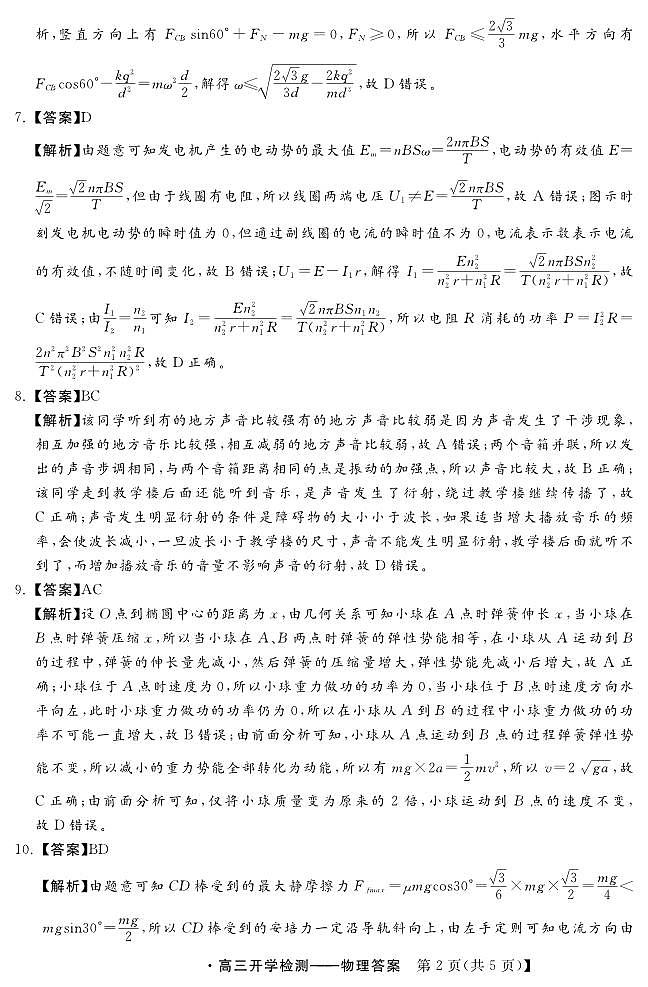 析,竖直方向上有 F_{CB} sin60°+F_N-mg=0,F_N≥0,所以 F_{CB}≤\frac{2\sqrt{3}}{3}mg,水平方向有
F_{CB}cos60°-\frac{kq^2}{d^2}=mω^2\frac{d}{2},解得 ω≤\sqrt{\frac{2\sqrt{3}g}{3d}-\frac{2kq^2}{md^3}},故 D 错误。
7.【答案】D
【解析】由题意可知发电机产生的电动势的最大值 E_m=nBSω=\frac{2nπBS}{T},电动势的有效值 E=
\frac{E_m}{\sqrt{2}}=\frac{\sqrt{2}nπBS}{T},但由于线圈有电阻,所以线圈两端电压 U_1≠E=\frac{\sqrt{2}nπBS}{T},故 A 错误;图示时
刻发电机电动势的瞬时值为 0,但通过副线圈的电流的瞬时值不为 0,电流表示数表示电流
的有效值,不随时间变化,故 B 错误;U_1=E-I_1r,解得 I_1=\frac{En_2^2}{n_2^2r+n_1^2R}=\frac{\sqrt{2}nπBSn_2^2}{T(n_2^2r+n_1^2R)},故
C 错误;由\frac{I_1}{I_2}=\frac{n_2}{n_1}可知 I_2=\frac{En_2^2}{n_2^2r+n_1^2R}=\frac{\sqrt{2}nπBSn_1n_2}{T(n_2^2r+n_1^2R)},所以电阻 R 消耗的功率 P=I_2^2R=
\frac{2n^2π^2B^2S^2n_1^2n_2^2R}{T^2(n_2^2r+n_1^2R)^2},故 D 正确。
8.【答案】BC
【解析】该同学听到有的地方声音比较强有的地方声音比较弱是因为声音发生了干涉现象,
相互加强的地方音乐比较强,相互减弱的地方声音比较弱,故 A 错误;两个音箱并联,所以发
出的声音步调相同,与两个音箱距离相同的点是振动的加强点,所以声音比较大,故 B 正确;
该同学走到教学楼后面还能听到音乐,是声音发生了衍射,绕过教学楼继续传播了,故
C 正确;声音发生明显衍射的条件是障碍物的大小小于波长,如果适当增大播放音乐的频
率,会使波长减小,一旦波长小于教学楼的尺寸,声音不能发生明显衍射,教学楼后面就听不
到了,而增加播放音乐的音量不影响声音的衍射,故 D 错误。
9.【答案】AC
【解析】设 O 点到椭圆中心的距离为 x,由几何关系可知小球在 A 点时弹簧伸长 x,当小球在
B 点时弹簧压缩 x,所以当小球在 A、B 两点时弹簧的弹性势能相等,在小球从 A 运动到 B
的过程中,弹簧的伸长量先减小,然后弹簧的压缩量增大,弹性势能先减小后增大,故 A 正
确;小球位于 A 点时速度为 0,所以小球重力做功的功率为 0,当小球位于 B 点时速度方向水
平向左,此时小球重力做功的功率仍为 0,所以在小球从 A 到 B 的过程中小球重力做功的功
率不可能一直增大,故 B 错误;由前面分析可知,小球从 A 点运动到 B 点的过程弹簧弹性势
能不变,所以减小的重力势能全部转化为动能,所以有 mg×2a=\frac{1}{2}mv^2,所以 v=2\sqrt{ga},故
C 正确;由前面分析可知,仅将小球质量变为原来的 2 倍,小球运动到 B 点的速度不变,
故 D 错误。
10.【答案】BD
【解析】由题意可知 CD 棒受到的最大静摩擦力 F_{fmax}=μmgcos30°=\frac{\sqrt{3}}{6}×mg×\frac{\sqrt{3}}{2}=\frac{mg}{4}<
mgsin30°=\frac{mg}{2},所以 CD 棒受到的安培力一定沿导轨斜向上,由左手定则可知电流方向由
·高三开学检测——物理答案 第 2 页(共 5 页)】